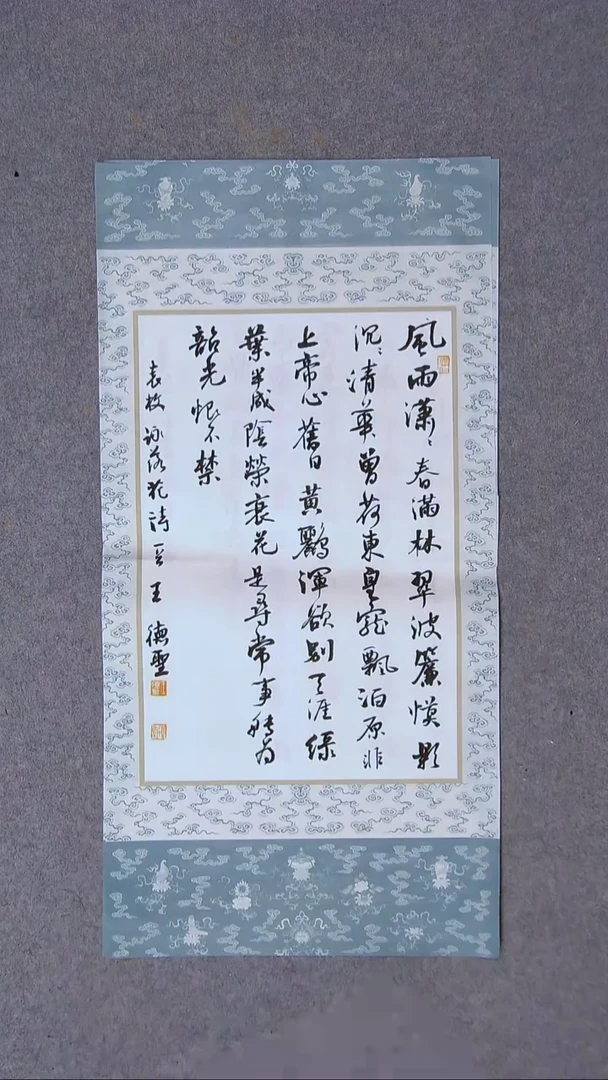 風雨瀟〻春滿林翠波簾幙影
沉〻清華曾荷東皇寵飄泊原非
上帝心舊日黃鸝渾欲別天涯綠
葉半成陰榮衰花是尋常事轉為
韶光恨不禁
袁枚詠落花詩一首王德聖